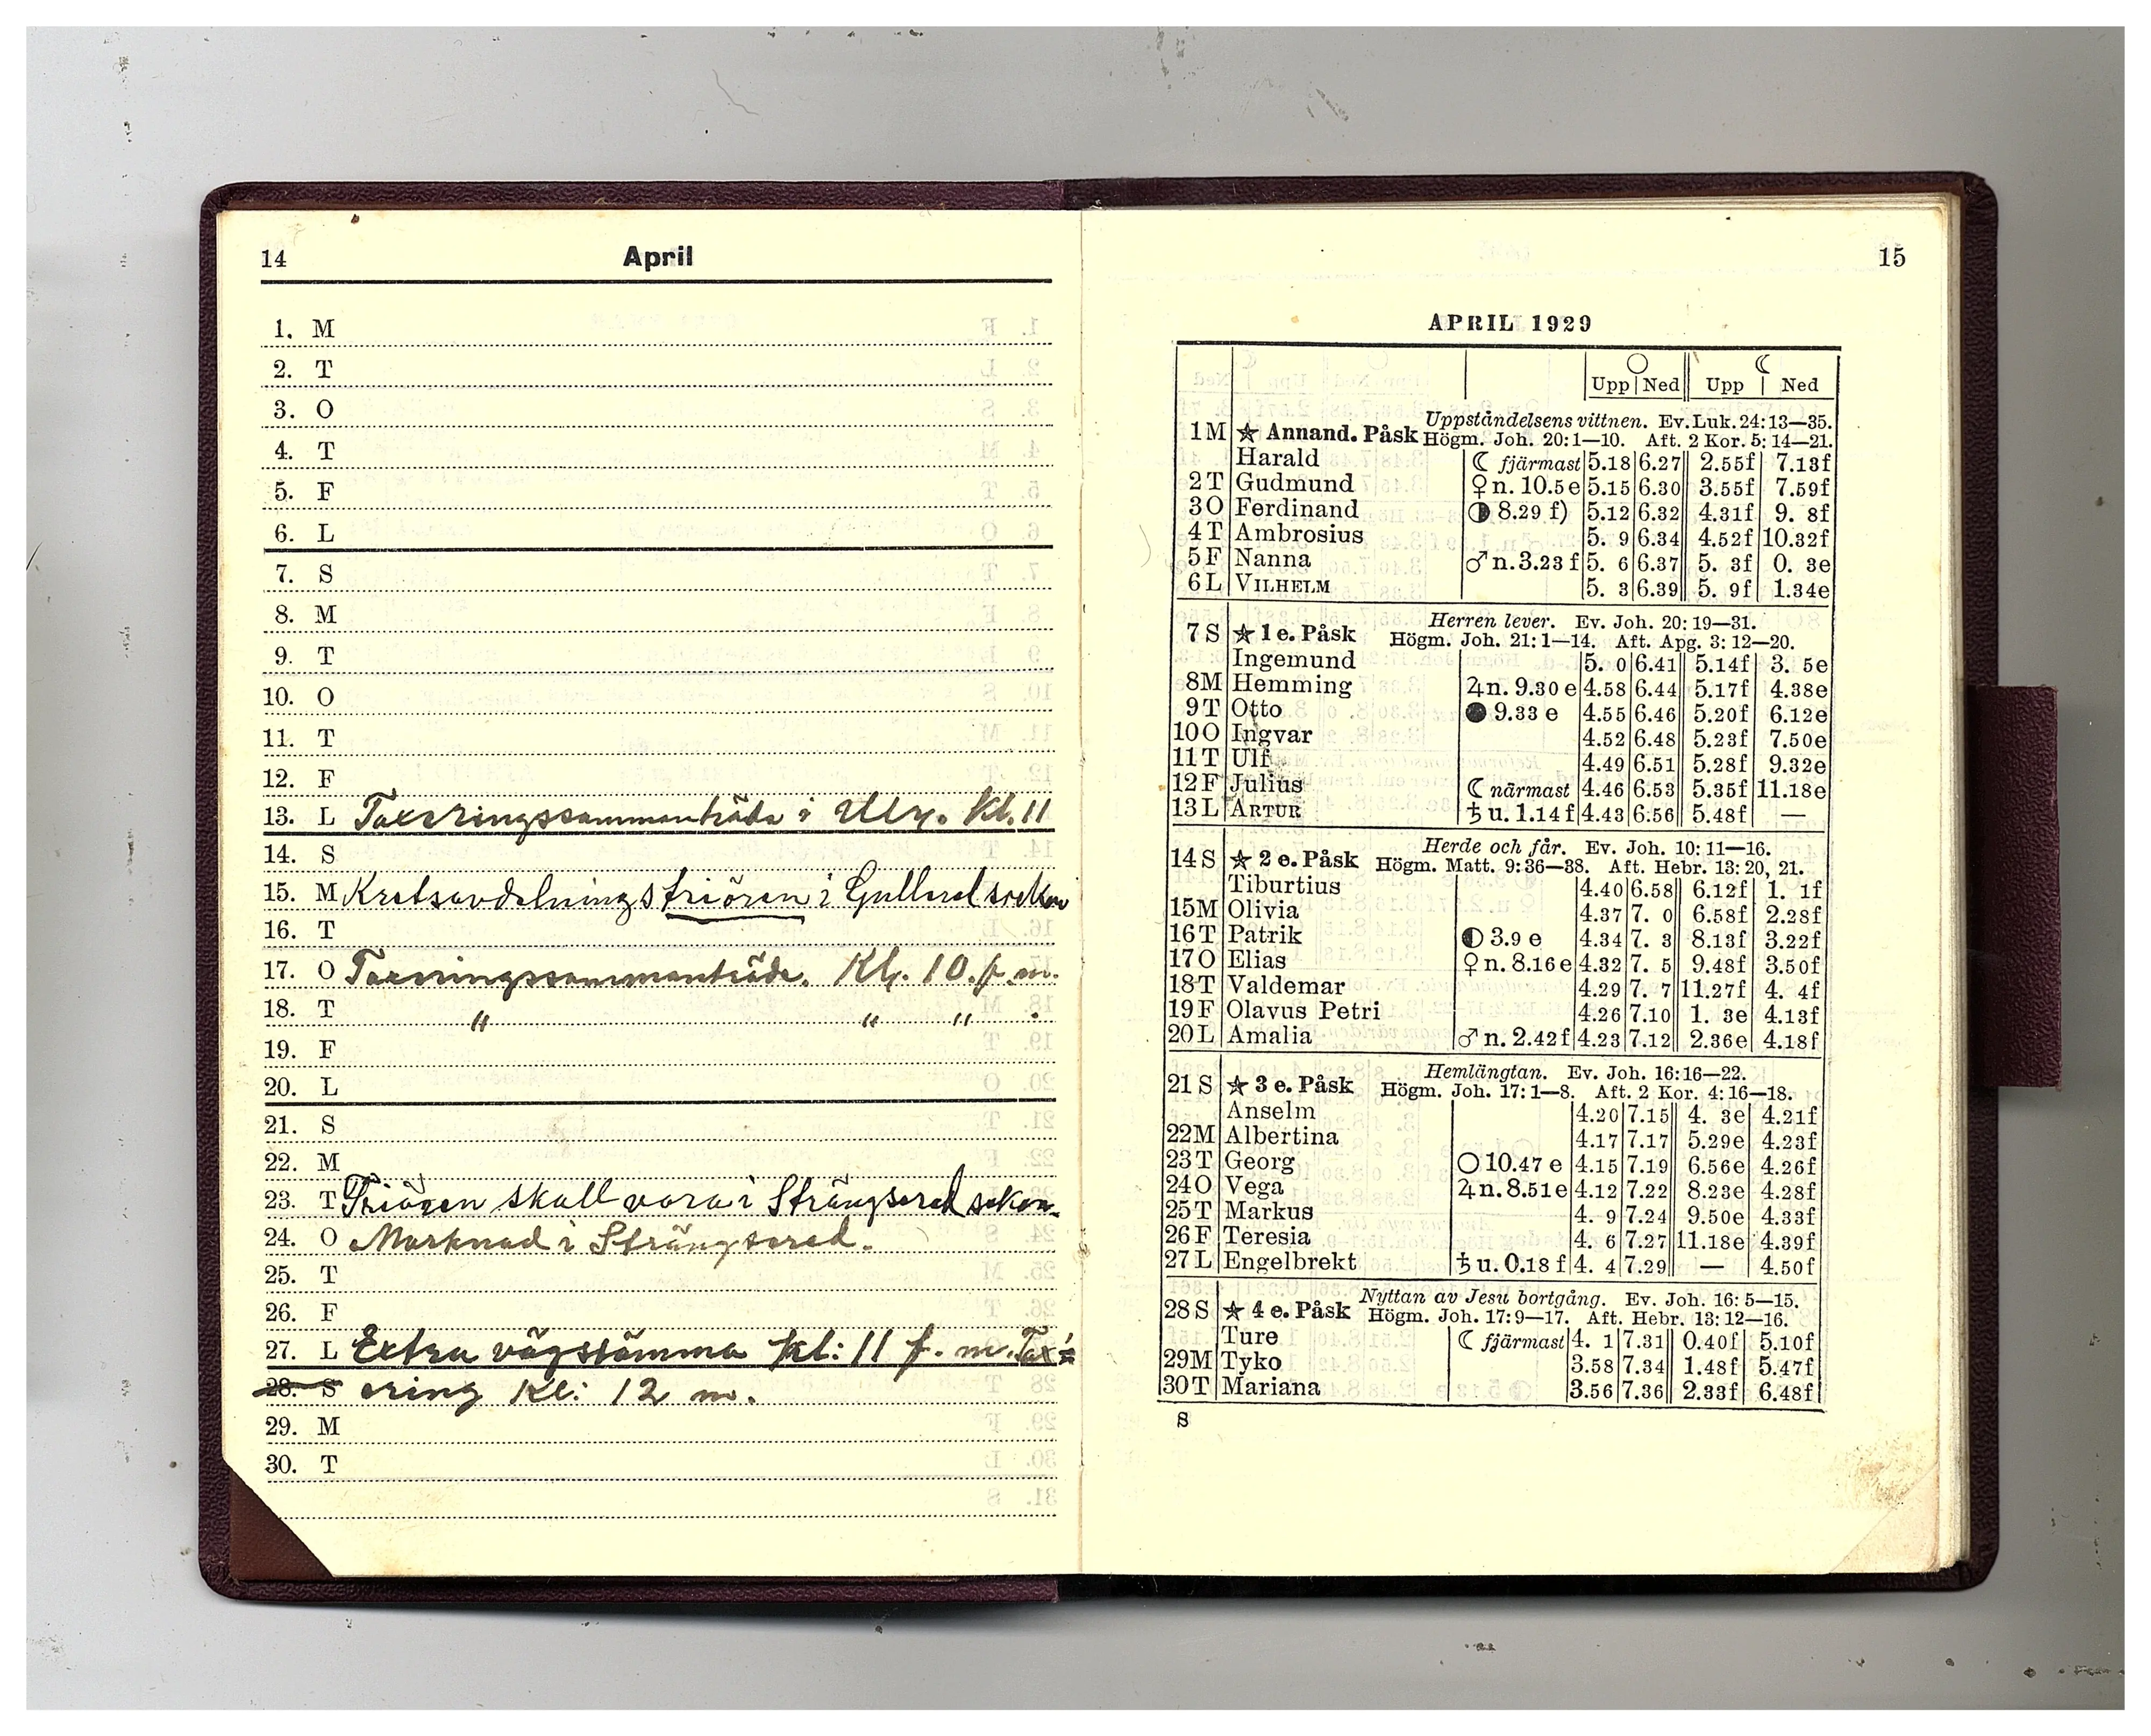 14 April
1. M
2. T
3. O
4. T
5. F
6. L
7. S
8. M
9. T
10. O
11. T
12. F
13. L Taxeringssammanträde i Ulr. kl. 11
14. S
15. M Kretsavdelnings triören i Gullered socken
16. T
17. O Taxeringssammanträde. Kl. 10. f. m.
18. T " " " .
19. F
20. L
21. S
22. M
23. T Triören skall vara i Strängsered soken.
24. O Marknad i Strängsered.
25. T
26. F
27. L Extra vägstämma kl: 11 f. m. Tax=
28. S ering Kl: 12 m.
29. M
30. T
15
APRIL 1929
○ ☾
Upp Ned Upp Ned
Uppståndelsens vittnen. Ev. Luk. 24: 13—35.
1 M ★ Annand. Påsk Högm. Joh. 20: 1—10. Aft. 2 Kor. 5: 14—21.
Harald ☾ fjärmast 5.18 6.27 2.55f 7.13f
2 T Gudmund ♀ n. 10.5 e 5.15 6.30 3.55f 7.59f
3 O Ferdinand ◑ 8.29 f) 5.12 6.32 4.31f 9. 8f
4 T Ambrosius 5. 9 6.34 4.52f 10.32f
5 F Nanna ♂ n. 3.23 f 5. 6 6.37 5. 3f 0. 3e
6 L VILHELM 5. 3 6.39 5. 9f 1.34e
Herren lever. Ev. Joh. 20: 19—31.
7 S ★ 1 e. Påsk Högm. Joh. 21: 1—14. Aft. Apg. 3: 12—20.
Ingemund 5. 0 6.41 5.14f 3. 5e
8 M Hemming ♃ n. 9.30 e 4.58 6.44 5.17f 4.38e
9 T Otto ● 9.33 e 4.55 6.46 5.20f 6.12e
10 O Ingvar 4.52 6.48 5.23f 7.50e
11 T Ulf 4.49 6.51 5.28f 9.32e
12 F Julius ☾ närmast 4.46 6.53 5.35f 11.18e
13 L ARTUR ♄ u. 1.14 f 4.43 6.56 5.48f —
Herde och får. Ev. Joh. 10: 11—16.
14 S ★ 2 e. Påsk Högm. Matt. 9: 36—38. Aft. Hebr. 13: 20, 21.
Tiburtius 4.40 6.58 6.12f 1. 1f
15 M Olivia 4.37 7. 0 6.58f 2.28f
16 T Patrik ◐ 3.9 e 4.34 7. 3 8.13f 3.22f
17 O Elias ♀ n. 8.16 e 4.32 7. 5 9.48f 3.50f
18 T Valdemar 4.29 7. 7 11.27f 4. 4f
19 F Olavus Petri 4.26 7.10 1. 3e 4.13f
20 L Amalia ♂ n. 2.42 f 4.23 7.12 2.36e 4.18f
Hemlängtan. Ev. Joh. 16: 16—22.
21 S ★ 3 e. Påsk Högm. Joh. 17: 1—8. Aft. 2 Kor. 4: 16—18.
Anselm 4.20 7.15 4. 3e 4.21f
22 M Albertina 4.17 7.17 5.29e 4.23f
23 T Georg ○ 10.47 e 4.15 7.19 6.56e 4.26f
24 O Vega ♃ n. 8.51 e 4.12 7.22 8.23e 4.28f
25 T Markus 4. 9 7.24 9.50e 4.33f
26 F Teresia 4. 6 7.27 11.18e 4.39f
27 L Engelbrekt ♄ u. 0.18 f 4. 4 7.29 — 4.50f
Nyttan av Jesu bortgång. Ev. Joh. 16: 5—15.
28 S ★ 4 e. Påsk Högm. Joh. 17: 9—17. Aft. Hebr. 13: 12—16.
Ture ☾ fjärmast 4. 1 7.31 0.40f 5.10f
29 M Tyko 3.58 7.34 1.48f 5.47f
30 T Mariana 3.56 7.36 2.33f 6.48f
S